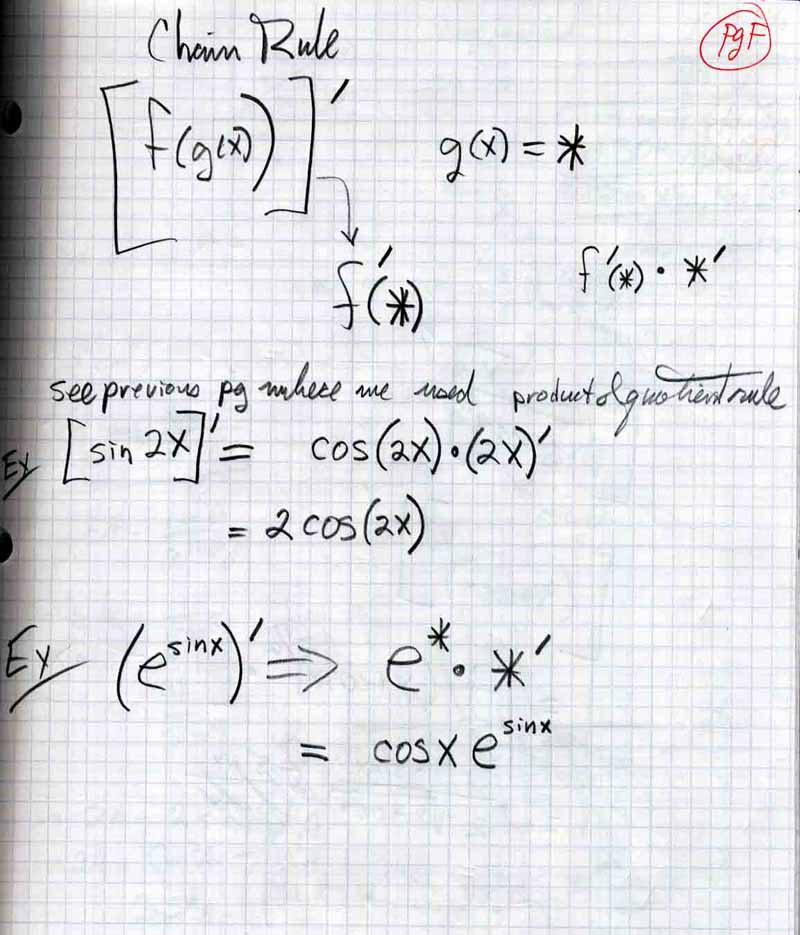 Chain Rule
Pg F
[f(g(x))]'
g(x) = *
f'(*)
f'(*) · *'
see previous pg where we used product & quotient rule
Ex [sin 2x]' = cos(2x)·(2x)'
= 2 cos(2x)
Ex (e^sinx)' ⇒ e^* · *'
= cosx e^sinx